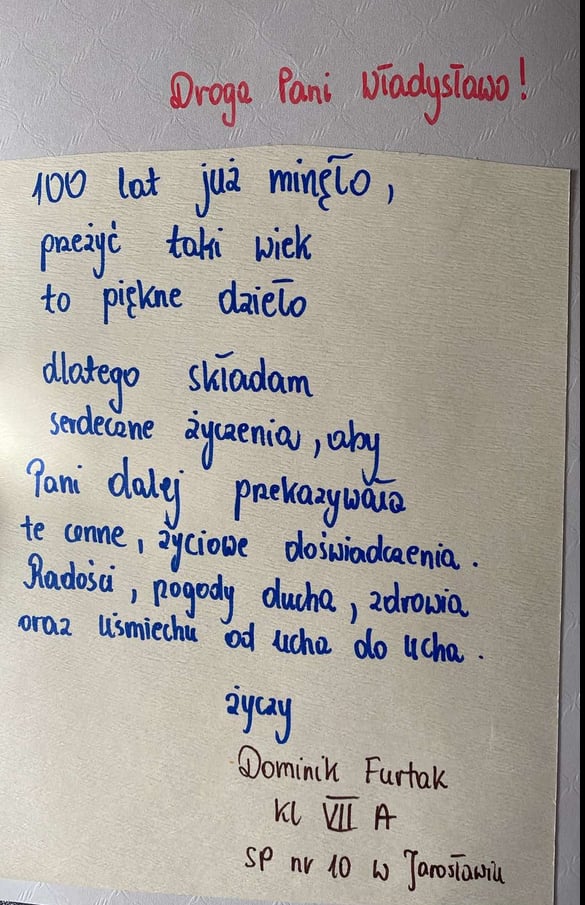 Droga Pani Władysławo!
100 lat już minęło,
przeżyć taki wiek
to piękne dzieło
dlatego składam
serdeczne życzenia, aby
Pani dalej przekazywała
te cenne, życiowe doświadczenia.
Radości, pogody ducha, zdrowia
oraz uśmiechu od ucha do ucha.
życzy
Dominik Furtak
kl VII A
SP nr 10 w Jarosławiu